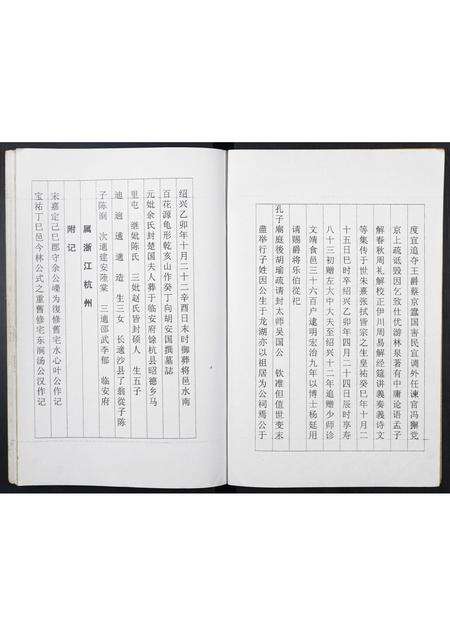 度宜追夺王爵蔡京蠹国害民宜调外任谏官冯澥党
京上疏诋毁因乞致仕优游林泉著有中庸论语孟子
解春秋周礼解校正伊川周易解经筵讲义奏義诗文
等集传于世朱熹张拭皆宗之生皇祐癸巳年十月二
十五日巳时卒绍兴乙卯年四月二十四日辰时享寿
八十三初赠左大中大夫至绍兴十二年追赠少师谥
文靖食邑三十六百户逮明宏治九年以博士杨廷用
请赐爵将乐伯從祀
孔子廟庭後胡瑜疏请封太师吴国公 钦准但值世变末
盡举行子姓因公生于龙湖亦以祖居为公祠焉公于
绍兴乙卯年十月二十二辛酉日末时御葬将邑水南
百花源龟形乾亥山作癸丁向胡安国撰墓誌
元妣余氏封楚国夫人葬于临安府馀杭县昭德乡马
里屯 继妣陈氏 三妣赵氏皆封硕人 生五子
迪 迥 遹 適 造 生三女 长適沙县了翁從子陈
子陈渊 次適建安陸棠 三適邵武李郁 临安府
属浙江杭州
附记
宋嘉定己巳郡守余公嶸为復修舊宅水心叶公作记
宝祐丁巳邑今林公式之重舊修宅东涧汤公汉作记